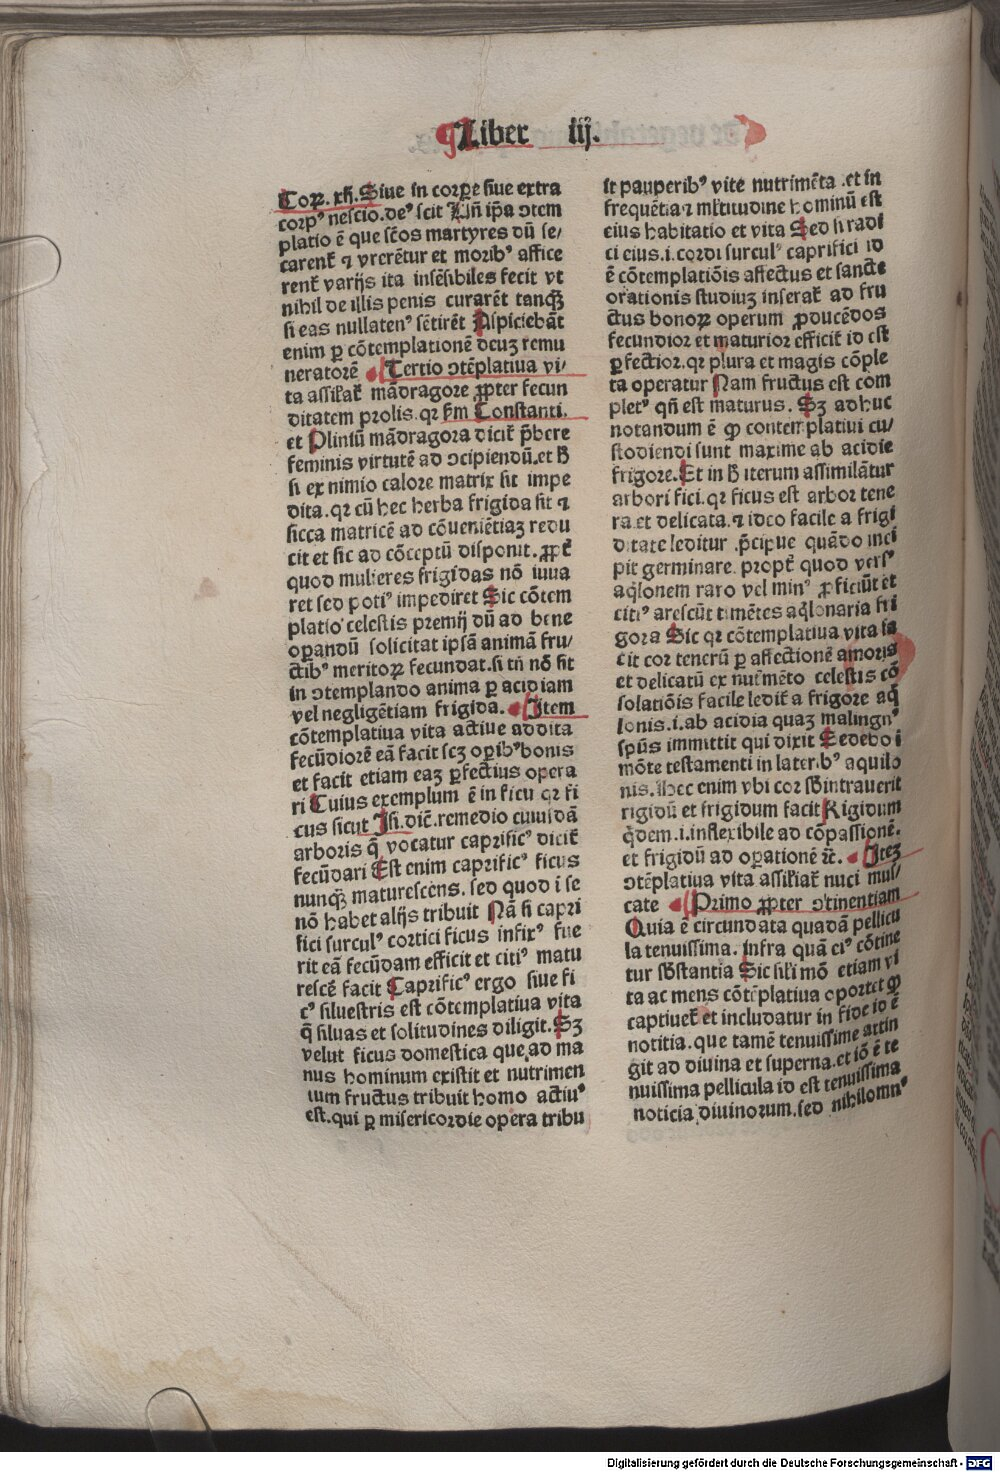 Liber iij.
Coꝝ. xij. Siue in corꝑe siue extra
corpꝰ nescio. deꝰ scit Uñ ip̄a ↄtem
platio ē que sc̄os martyres dū se/
carent᷑ ⁊ vrerētur et moribꝰ affice
rent᷑ varijs ita insēsibiles fecit vt
nihil de illis penis curarēt tanqȝ̄
si eas nullatenꝰ sētirēt Aspiciebāt
enim ꝑ cōtemplationē deuȝ remu
neratorē Tertio ↄtēplatiua vi/
ta assil̓at᷑ mādragore ꝓpter fecun
ditatem prolis. qꝛ ẜm Constanti.
et Pliniū mādragora dicit᷑ p̄bere
feminis virtutē ad ↄcipiendū. et h̄
si ex nimio calore matrix sit impe
dita. qꝛ cū hec herba frigida sit ⁊
sicca matricē ad cōueniētiaȝ redu
cit et sic ad cōceptū disponit. ꝓpt̓
quod mulieres frigidas nō iuua
ret sed potiꝰ impediret Sic cōtem
platio celestis premij dū ad bene
oꝑandū solicitat ipsā animā fru/
ctibꝰ meritoꝝ fecundat. si tn̄ nō sit
in ↄtemplando anima ꝑ acidiam
vel negligētiam frigida. Item
cōtemplatiua vita actiue addita
fecūdiorē eā facit scȝ oꝑibꝰ bonis
et facit etiam eaȝ ꝑfectius opera
ri Cuius exemplum ē in ficu qꝛ fi
cus sicut Isi. dic̄. remedio cuiusdā
arboris q̄ vocatur caprificꝰ dicit᷑
fecūdari Est enim caprificꝰ ficus
nunqȝ̄ maturescens. sed quod ī se
nō habet alijs tribuit Nā si capri
fici surculꝰ cortici ficus infixꝰ fue
rit eā fecūdam efficit et citiꝰ matu
rescē facit Caprificꝰ ergo siue fi
cꝰ siluestris est cōtemplatiua vita
q̄ siluas et solitudines diligit. Sȝ
velut ficus domestica que ad ma
nus hominum existit et nutrimen
tum fructus tribuit homo actiuꝰ
est. qui ꝑ misericordie opera tribu
it pauperibꝰ vite nutrimēta. et in
frequētia ⁊ ml̓titudine hominū est
eius habitatio et vita Sed si radi
ci eius. i. cordi surculꝰ caprifici id
ē cōtemplatiōis affectus et sancte
orationis studiuȝ inserat᷑ ad fru
ctus bonoꝝ operum ꝓducēdos
fecundior et maturior efficit᷑ id est
ꝑfectior. qꝛ plura et magis cōple
ta operatur Nam fructus est com
pletꝰ qn̄ est maturus. Sȝ adhuc
notandum ē ꝙ contemplatiui cu/
stodiendi sunt maxime ab acidie
frigore. Et in h̄ iterum assimilātur
arbori fici. qꝛ ficus est arbor tene
ra et delicata. ⁊ ideo facile a frigi
ditate leditur. p̄cipue quādo inci
pit germinare. propt̓ quod versꝰ
aq̓lonem raro vel minꝰ ꝓficiūt et
citiꝰ arescūt timētes aq̓lonaria fri
gora Sic qꝛ cōtemplatiua vita fa
cit cor tenerū ꝑ affectionē amoris
et delicatū ex nut̓mēto celestis cō
solatiōis facile ledit᷑ a frigore aq̓
lonis. i. ab acidia quaȝ malingnꝰ
sp̄us immittit qui dixit Sedebo ī
mōte testamenti in lateribꝰ aquilo
nis. Hec enim vbi cor sb̄intrauerit
rigidū et frigidum facit Rigidum
q̓dem. i. inflexibile ad cōpassionē.
et frigidū ad oꝑationē ⁊c̄. Iteȝ
ↄtēplatiua vita assil̓iat᷑ nuci mus/
cate Primo ꝓpter ↄtinentiam
Quia ē circundata quadā pellicu
la tenuissima. infra quā ciꝰ cōtine
tur sb̄stantia Sic sil̓i mō etiam vi
ta ac mens cōtēplatiua oportet ꝙ
captiuet᷑ et includatur in fide id ē
notitia. que tamē tenuissime attin
git ad diuina et superna. et iō ē te
nuissima pellicula id est tenuissima
noticia diuinorum. sed nihilomnꝰ
Digitalisierung gefördert durch die Deutsche Forschungsgemeinschaft - DFG